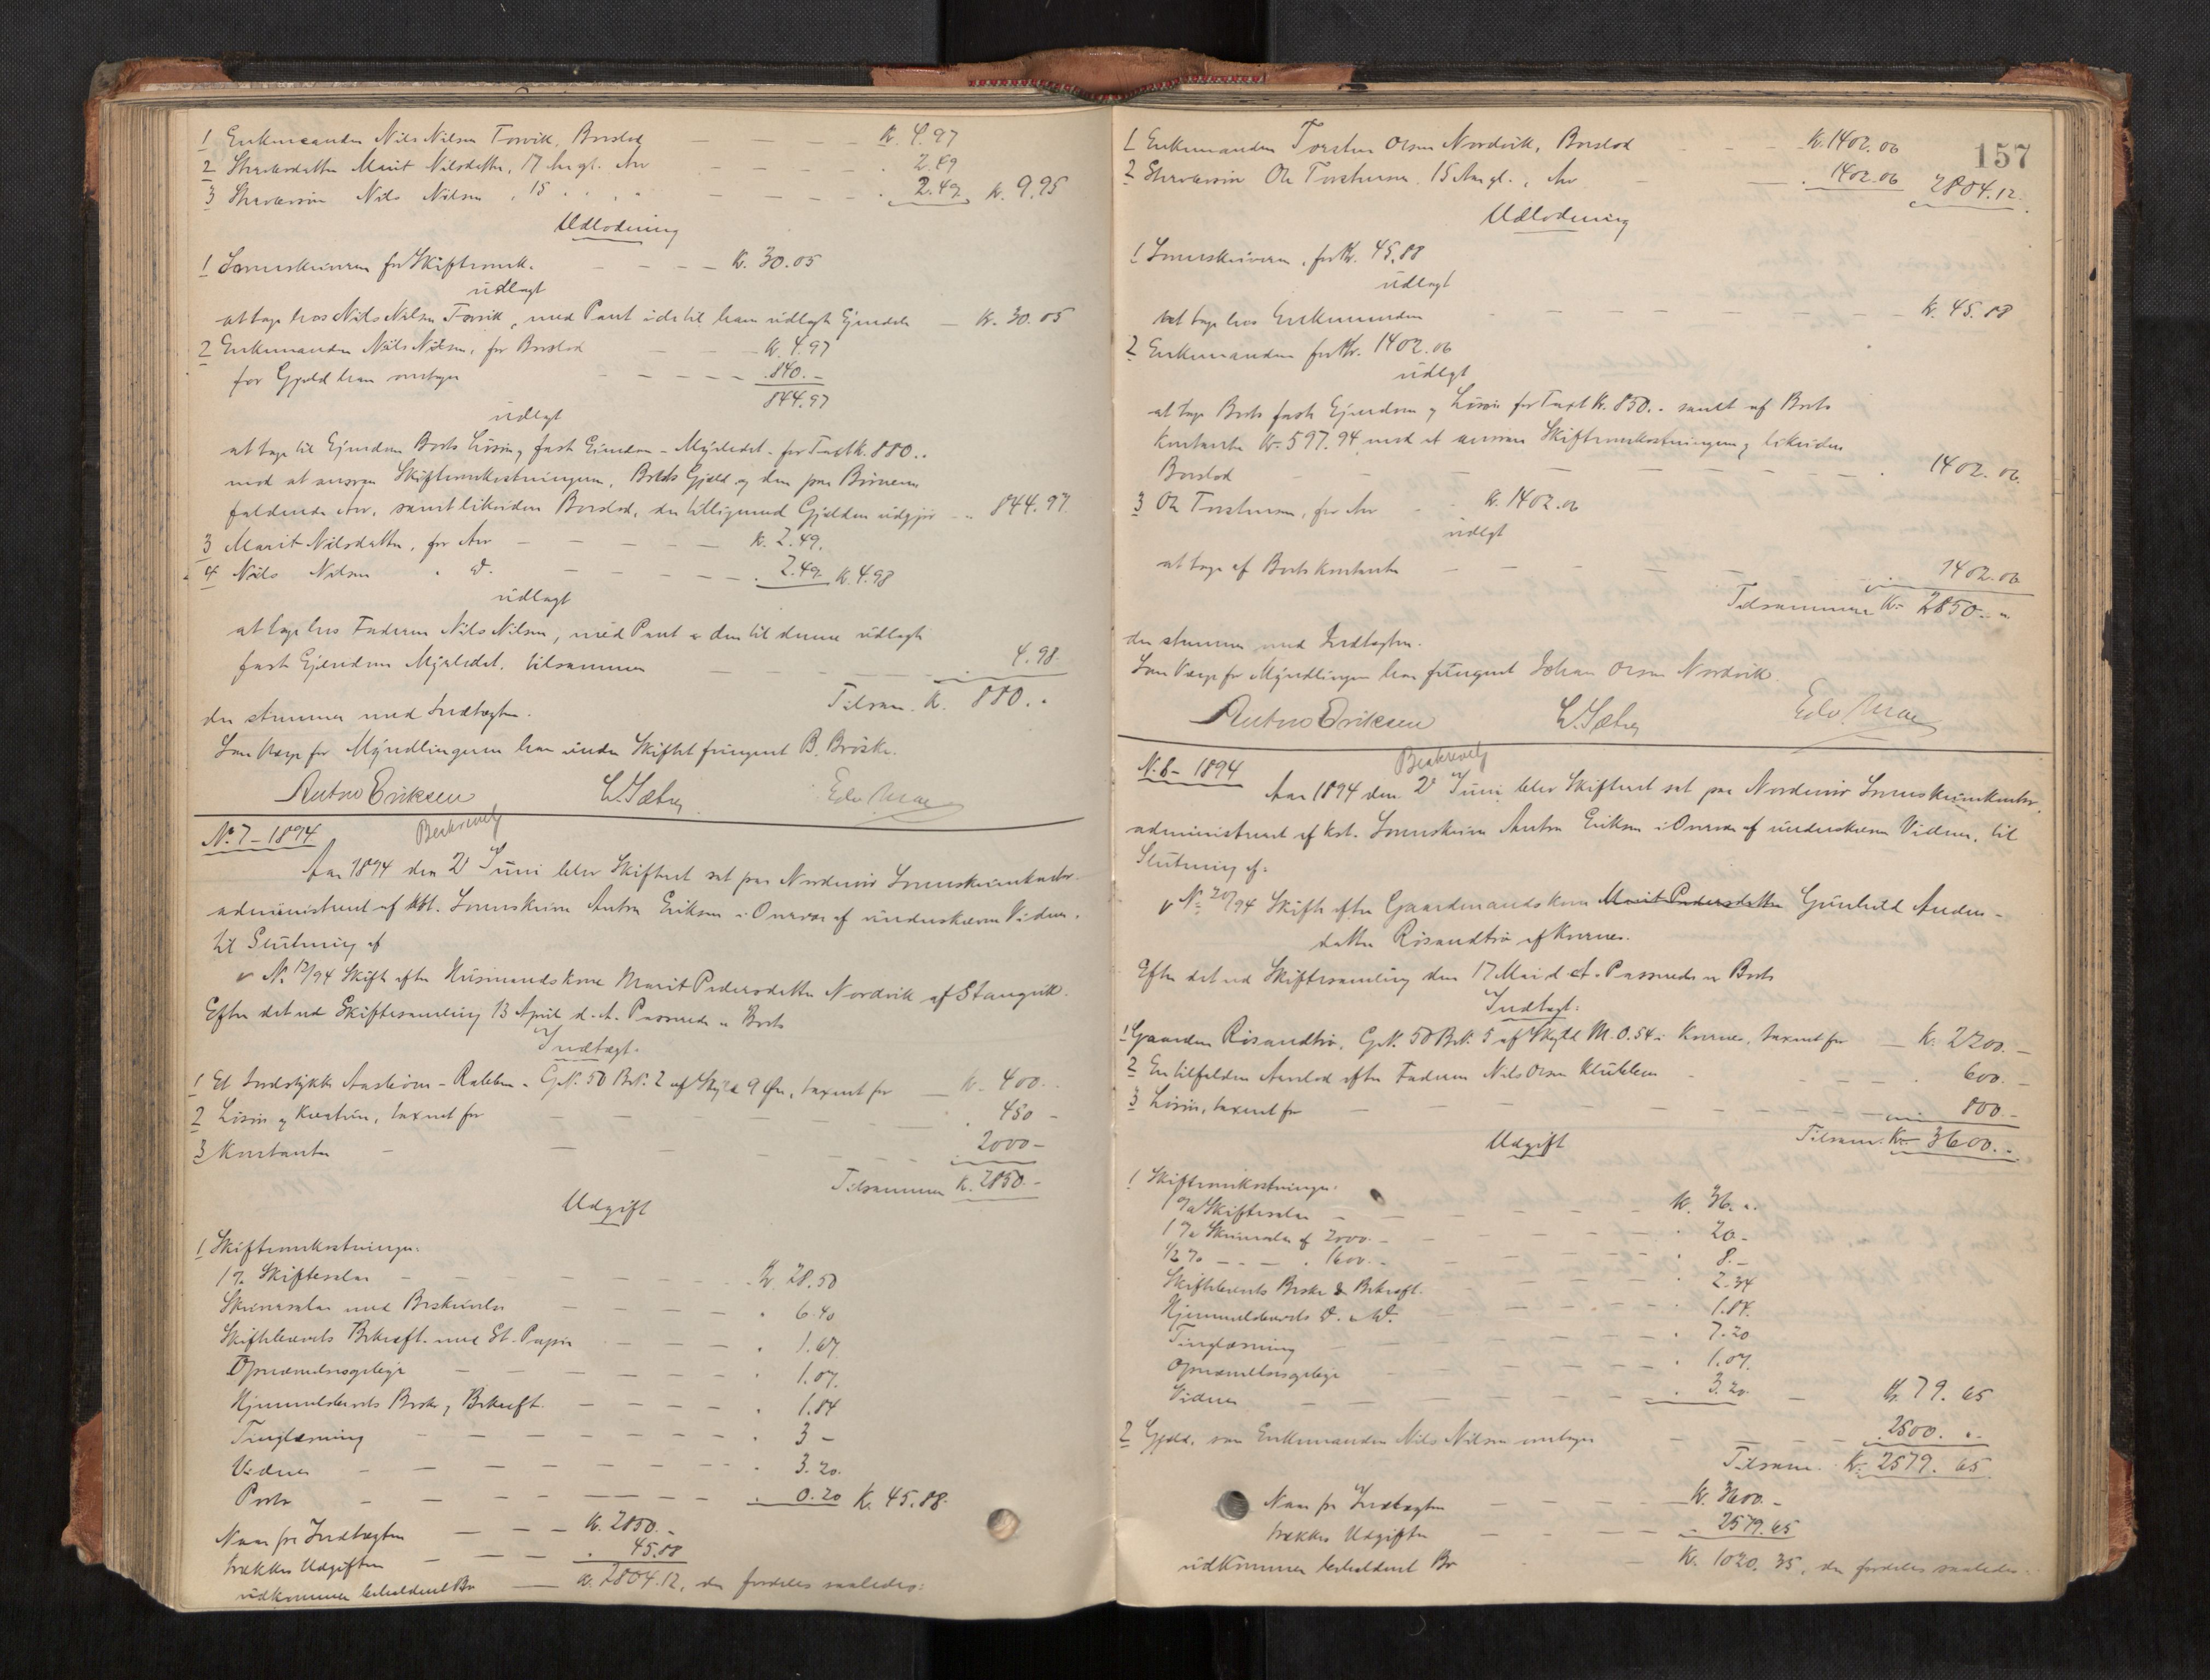 1 Enkemanden Nils Nilsen Torvik, Boslod — — — — Kr. 4.97
2 Stervbodatter Marit Nilsdatter, 17 Aar gl. Arv — — — . 2.49
3 Stervbosøn Nils Nilsen, 15 . . . — — — . 2.49 Kr. 9.95
Udlodning
1 Sorenskriveren for Skifteomk. — — — — Kr. 30.05
udlagt
at tage hos Nils Nilsen Torvik, med Pant i de til ham udlagte Ejendele — Kr. 30.05
2 Enkemanden Nils Nilsen, for Boslod — — Kr. 4.97
for Gjæld han overtager — — — — — . 840. -
844.97
udlagt
at tage til Ejendom Boets Løsøre, faste Eiendom - Myrledet - for Taxt Kr. 880..
mod at ansvare Skifteomkostningerne, Boets Gjæld og den paa Børnene
faldende Arv, samt likvidere Boslod, der tilligemed Gjælden udgjør — .. 844.97.
3 Marit Nilsdatter, for Arv — — — — — Kr. 2.49.
4 Nils Nilsen . do. — — — — — . 2.49 Kr. 4.98
udlagt
at tage hos Faderen Nils Nilsen, med Pant i den til denne udlagte
faste Ejendom Myrledet, tilsammen — — — . 4.98.
Tilsam. Kr. 880. .
der stemmer med Indtægten.
Som Værge for Myndlingerne har under Skiftet fungeret B. Brøske.
Anton Eriksen L. Sæter Edv.
No. 7 - 1894 Beskrevet
Aar 1894 den 2 Juni blev Skifteret sat paa Nordmør Sorenskriverkontor
administreret af kst. Sorenskriver Anton Eriksen i Overvær af underskrevne Vidner,
til Slutning af
v No. 12/94 Skifte efter Husmandskone Marit Pedersdatter Nordvik af Stangvik.
Efter det ved Skiftesamling 13 April d. A. Passerede er Boets
Indtægt.
1 Et Jordstykke Aasheim - Ralden - G.No. 50 B.No. 2 af Skyld 9 Øre, taxeret for — Kr. 400. -
2 Løsøre og Kreature, taxeret for — — — . 450 -
3 Kontanter — — — — . 2000 -
Tilsammen Kr. 2850. -
Udgift
1 Skifteomkostninger.
1 % Skiftesalær — — — — — . Kr. 28.50
Skriversalær med Beskrivelse — — — — . 6.40
Skiftebrevets Bekræft. med St. Papir — — — . 1.67
Opnævnelsesgebyr — — — — — . 1.07.
Hjemmelsbrevets Beskr. og Bekræft. — — — — . 1.84
Tinglæsning — — — — — . 3 -
Vidner — — — — — . 3.20.
Porto — — — — — . 0.20 Kr. 45.88.
Naar fra Indtægten — — — Kr. 2850. -
trækkes Udgiften — — — . 45.88
udkommer beholdent Bo — Kr. 2804.12, der fordeles saaledes:
157
1 Enkemanden Torsten Olsen Nordvik, Boslod — — — Kr. 1402.06
2 Stervbosøn Ole Torstensen, 15 Aar gl., Arv — — . 1402.06 2804.12.
Udlodning
1 Sorenskriveren, for Kr. 45.88
udlagt
at tage hos Enkemanden — — — — — — Kr. 45.88
2 Enkemanden for Kr. 1402.06
udlagt
at tage Boets faste Ejendom og Løsøre for Taxt Kr. 850.- samt af Boets
Kontanter Kr. 597.94 mod at ansvare Skifteomkostningerne og likvidere
Boslod — — — — — — . 1402.06.
3 Ole Torstensen, for Arv — Kr. 1402.06
udlagt
at tage af Boets Kontanter — — — — 1402.06
Tilsammen Kr. 2850. - -
der stemmer med Indtægten.
Som Værge for Myndlingen har fungeret Johan Olsen Nordvik.
Anton Eriksen L. Sæter Edv.
N. 8 - 1894 Beskrevet
Aar 1894 den 2 Juni blev Skifteret sat paa Nordmør Sorenskriverkontor,
administreret af kst. Sorenskriver Anton Eriksen i Overvær af underskrevne Vidner, til
Slutning af:
v No. 20/94 Skifte efter Gaardmandskone Marit Pedersdatter Gunhild Anders-
datter Risandtrø af Kvernes.
Efter det ved Skiftesamling den 17 Mai d. A. Passerede er Boets
Indtægt:
1 Gaarden Risandtrø, G.No. 50 B.No. 5 af Skyld M. 0.54 i Kvernes, taxeret for — Kr. 2200. -
2 En tilfalden Arvelod efter Faderen Nils Olsen — — . 600. -
3 Løsøre, taxeret for — — — — — — . 800. -
Tilsam. Kr. 3600. -
Udgift
1 Skifteomkostninger.
1 % Skiftesalær — — — — — Kr. 36. -
1 % Skriversalær af 2000. - — — — . 20 -
1/2 % — — . 1600. - — — — . 8. -
Skiftebrevets Beskr. & Bekræft. — — — . 2.34
Hjemmelsbrevets d. & d. — — — — . 1.84.
Tinglæsning — — — — — . 7.20
Opnævnelsesgebyr — — — — . 1.07.
Vidner — — — — — . 3.20. — Kr. 79.65
2 Gjæld, som Enkemanden Nils Nilsen overtager — — — . 2500. -
Tilsam. Kr. 2579.65
Naar fra Indtægten — — — — Kr. 3600. -
trækkes Udgiften — — — — . 2579.65
udkommer beholdent Bo — Kr. 1020.35, der fordeles saaledes: